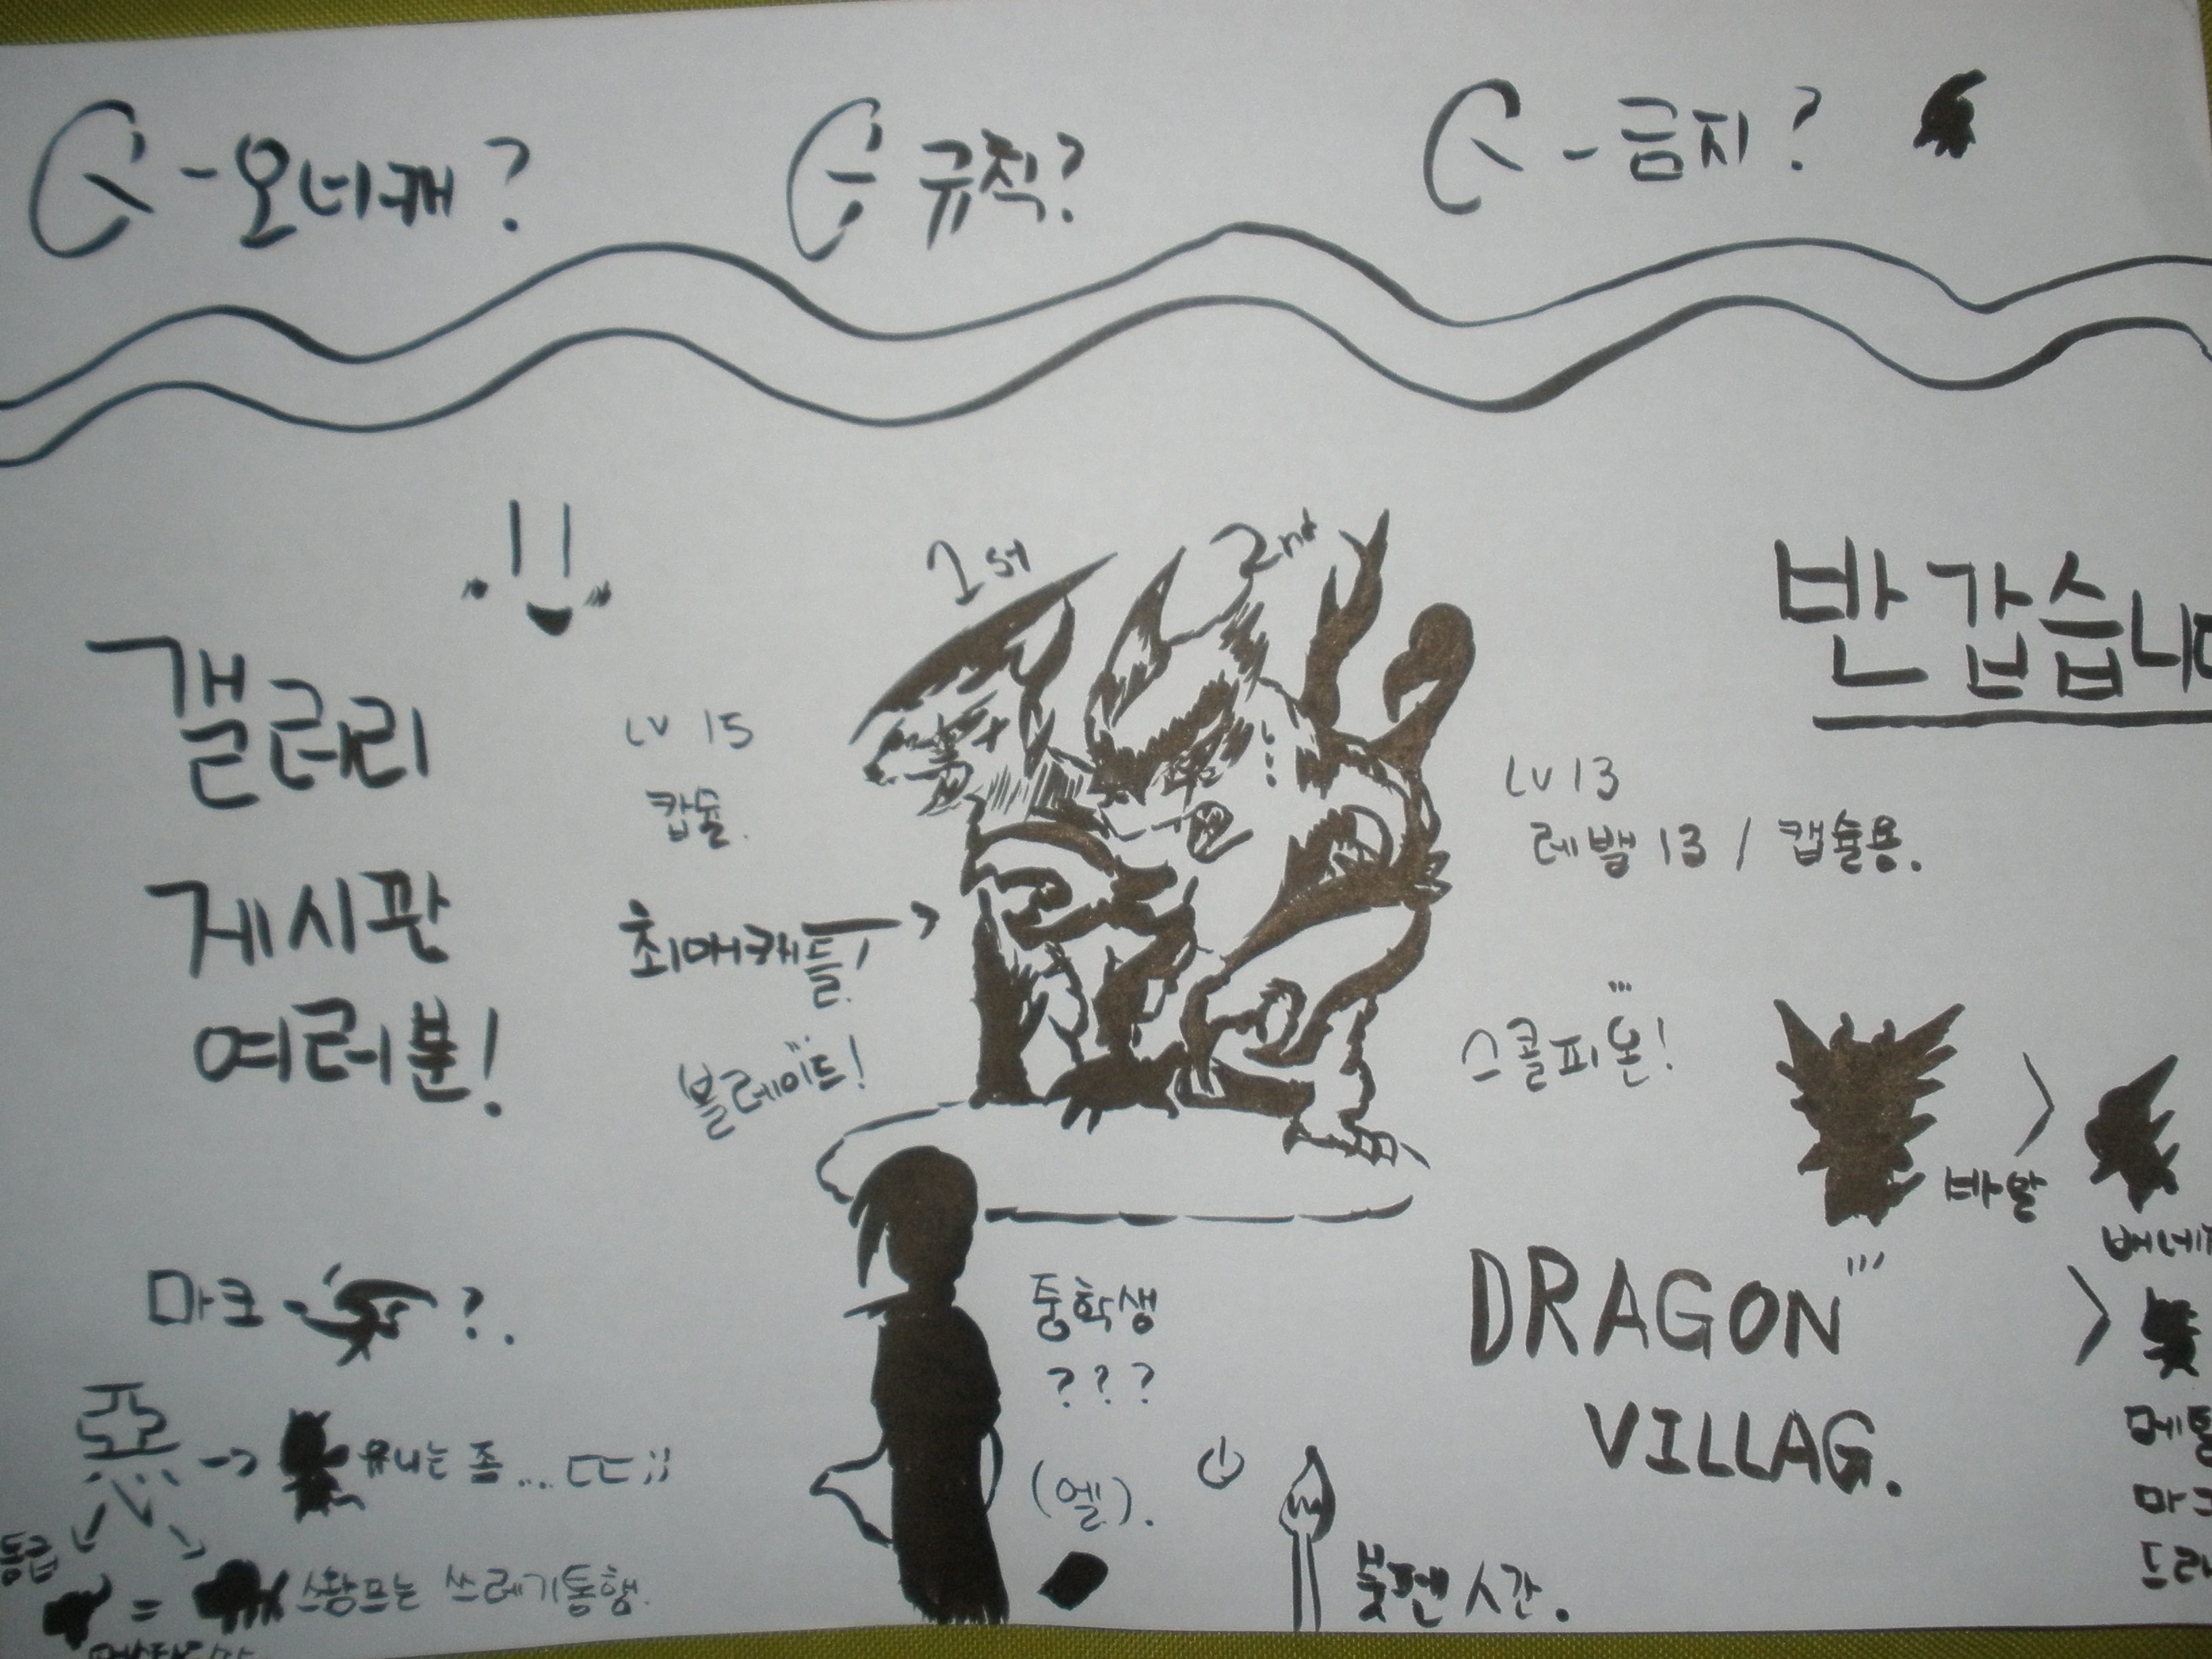 Q-오너캐?
Q 규칙?
Q-금지?
갤러리
게시판
여러분!
1st
2nd
LV 15
캡슐.
최애캐들!
블레이드!
반갑습니다
LV 13
레밸 13 / 캡슐용.
스콜피온!
바알
DRAGON
VILLAG.
마크 ?.
惡 → 유니는 좀... ㄷㄷ;;
동급
= 스왐프는 쓰레기통행.
중학생
???
(엘).
붓펜 시간.